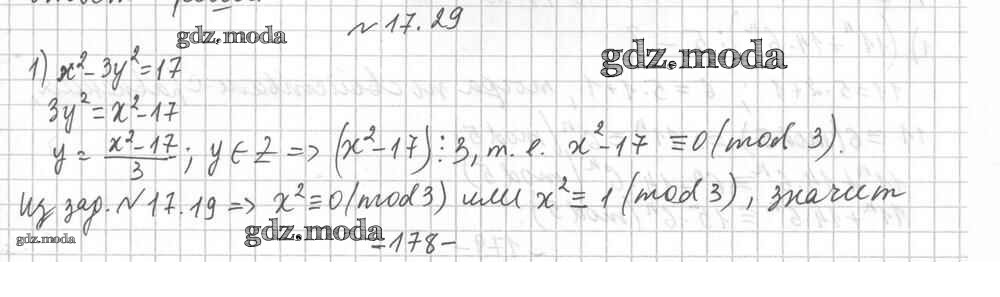 №17.29
gdz.moda
gdz.moda
1) x²-3y²=17
3y²=x²-17
y = \frac{x²-17}{3}; y∈Z => (x²-17)⋮3, т. е. x²-17 ≡0(mod 3).
Из зад. №17.19 => x²≡0(mod3) или x²≡1(mod3), значит
gdz.moda
gdz.moda
-178-